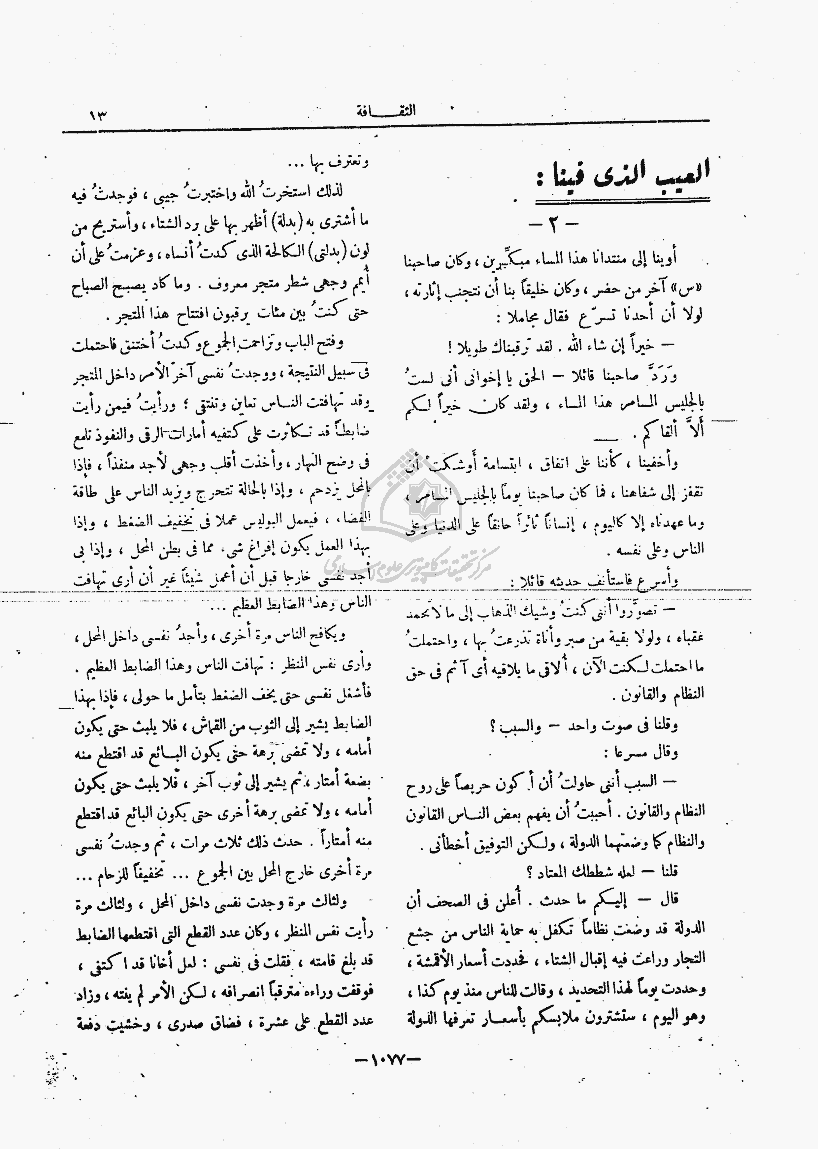 الثقـــافة
١٣
العيب الذى فينا :
— ٢ —
أوينا إلى منتدانا هذا المساء مبكّرين ، وكان صاحبنا
«س» آخر من حضر ، وكان خليقاً بنا أن نتجنب إثارته ،
لولا أن أحدنا تسرّع فقال مجاملا :
— خيراً إن شاء الله . لقد ترقبناك طويلا !
وَرَدَّ صاحبنا قائلا — الحق يا إخوانى أنى لستُ
بالجليس السامر هذا المساء ، ولقد كان خيراً لكم
ألاَّ ألقاكم .
وأخفينا ، كأننا على اتفاق ، ابتسامة أوشكتْ أن
تقفز إلى شفاهنا ، فما كان صاحبنا يوماً بالجليس السامر ،
وما عهدناه إلا كاليوم ، إنساناً ثائراً حانقاً على الدنيا وعلى
الناس وعلى نفسه .
وأسرع فاستأنف حديثه قائلا :
— تصوَّروا أننى كنتُ وشيك الذهاب إلى ما لا تحمد
عقباه ، ولولا بقية من صبر وأناة تذرعتُ بها ، واحتملتُ
ما احتملت لكنت الآن ، ألاقى ما يلاقيه أى آثم فى حق
النظام والقانون .
وقلنا فى صوت واحد — والسبب ؟
وقال مسرعا :
— السبب أننى حاولتُ أن أكون حريصاً على روح
النظام والقانون . أحببتُ أن يفهم بعض الناس القانون
والنظام كما وضعتهما الدولة ، ولكن التوفيق أخطأنى .
قلنا — لعله شططك المعتاد ؟
قال — إليكم ما حدث . أعلن فى الصحف أن
الدولة قد وضعت نظاماً تكفل به حماية الناس من جشع
التجار وراعت فيه إقبال الشتاء ، فحددت أسعار الأقمشة ،
وحددت يوماً لهذا التحديد ، وقالت للناس منذ يوم كذا ،
وهو اليوم ، ستشترون ملابسكم بأسعار تعرفها الدولة
وتعترف بها ...
لذلك استخرتُ الله واختبرتُ جيبى ، فوجدتُ فيه
ما أشترى به (بدلة) أظهر بها على برد الشتاء ، وأستريح من
لون (بدلتى) الكالحة الذى كدتُ أنساه ، وعزمتُ على أن
أيمم وجهى شطر متجر معروف . وما كاد يصبح الصباح
حتى كنتُ بين مئات يرقبون افتتاح هذا المتجر .
وفتح الباب وتزاحمت الجموع وكدتُ أختنق فاحتملت
فى سبيل النتيجة ، ووجدتُ نفسى آخرَ الأمر داخل المتجر
وقد تهافتت الناس تعاين وتنتقى ؛ ورأيتُ فيمن رأيت
ضابطاً قد تكاثرت على كتفيه أمارات الرقى والنفوذ تلمع
فى وضح النهار ، وأخذت أقلب وجهى لأجد منفذاً ، فإذا
بالمحل يزدحم ، وإذا بالحالة تتحرج ويزيد الناس على طاقة
الفضاء ، فيعمل البوليس عملا فى تخفيف الضغط ، وإذا
بهذا العمل يكون إفراغ شىء مما فى بطن المحل ، وإذا بى
أجد نفسى خارجا قبل أن أعمل شيئاً غير أن أرى تهافت
الناس وهذا الضابط العظيم ...
ويكافح الناس مرة أخرى ، وأجدُ نفسى داخل المحل ،
وأرى نفس المنظر : تهافت الناس وهذا الضابط العظيم .
فأشغل نفسى حتى يخف الضغط بتأمل ما حولى ، فإذا بهذا
الضابط يشير إلى الثوب من القماش ، فلا يلبث حتى يكون
أمامه ، ولا تمضى برهة حتى يكون البائع قد اقتطع منه
بضعة أمتار ، ثم يشير إلى ثوب آخر ، فلا يلبث حتى يكون
أمامه ، ولا تمضى برهة أخرى حتى يكون البائع قد اقتطع
منه أمتاراً . حدث ذلك ثلاث مرات ، ثم وجدتُ نفسى
مرة أخرى خارج المحل بين الجموع ... تخفيفاً للزحام ...
ولثالث مرة وجدت نفسى داخل المحل ، ولثالث مرة
رأيت نفس المنظر ، وكان عدد القطع التى اقتطعها الضابط
قد بلغ قامته ، فقلت فى نفسى : لعل أخانا قد اكتفى ،
فوقفت وراءه مترقباً انصرافه ، لكن الأمر لم يفته ، وزاد
عدد القطع على عشرة ، فضاق صدرى ، وخشيت دفعة
—١٠٧٧—